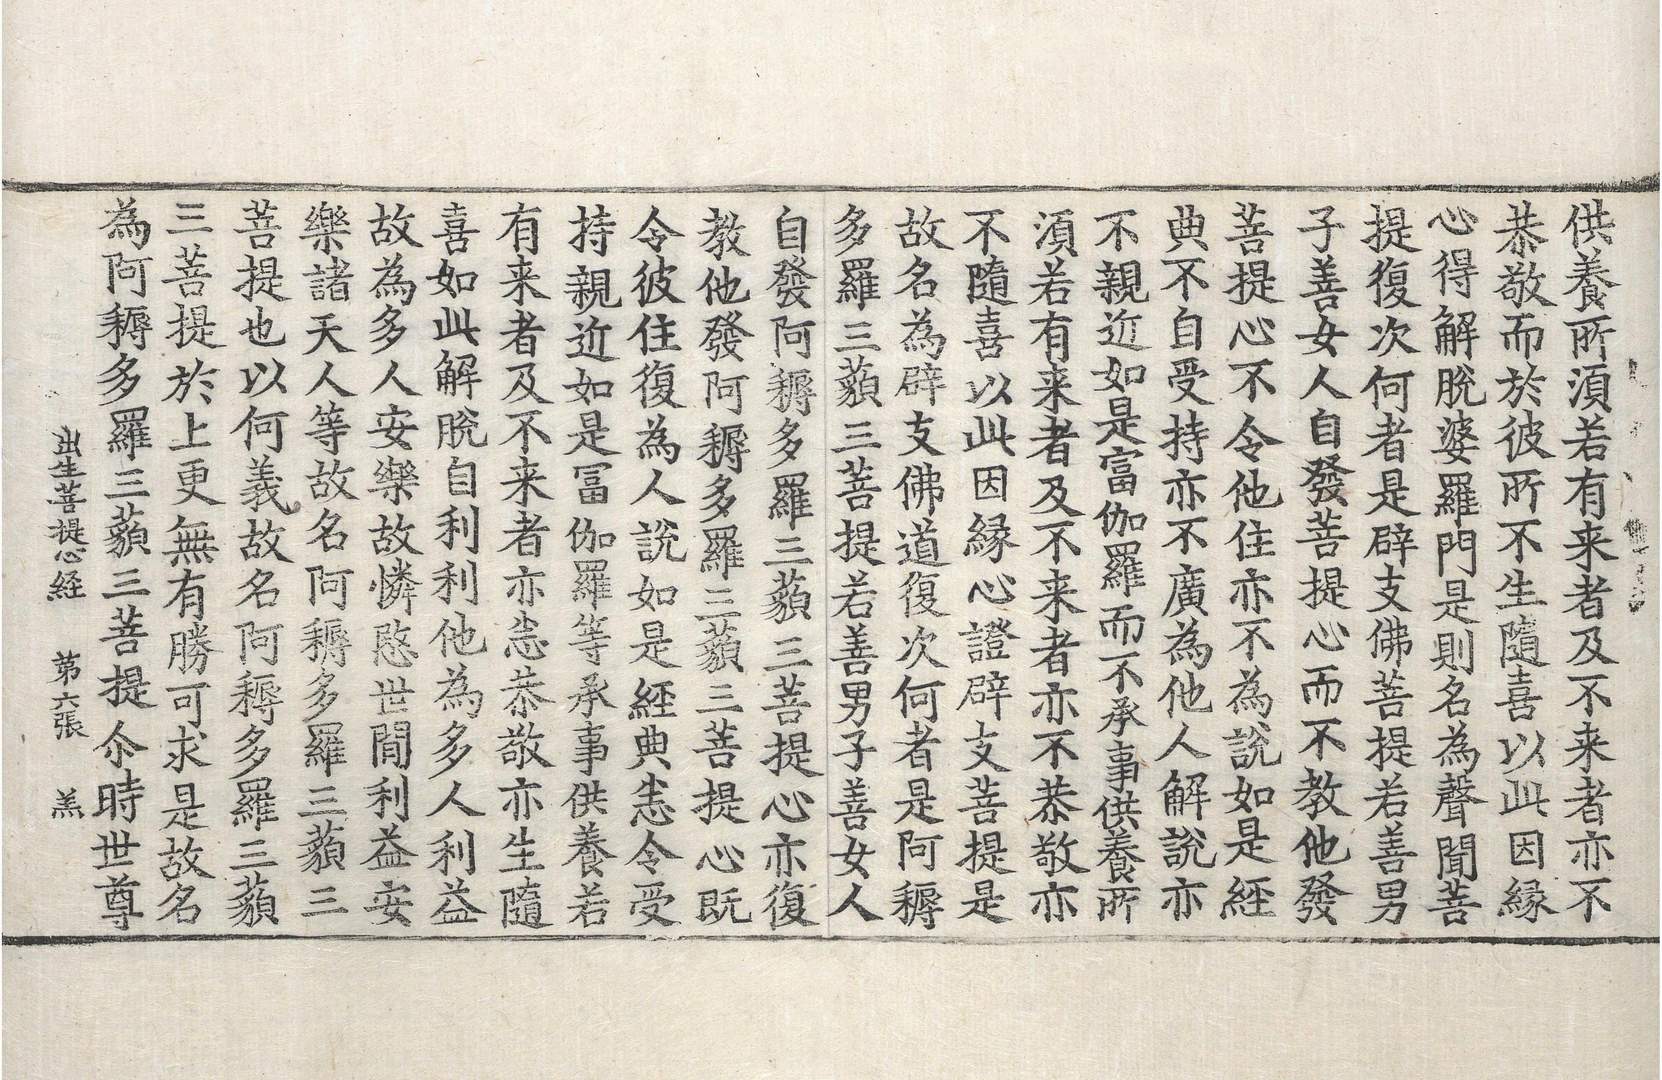 供養所湏若有来者及不来者亦不
恭敬而於彼所不生隨喜以此因縁
心得解脫婆羅門是則名為聲聞菩
提復次何者是辟支佛菩提若善男
子善女人自發菩提心而不教他發
菩提心不令他住亦不為說如是經
典不自受持亦不廣為他人解說亦
不親近如是富伽羅而不承事供養所
湏若有来者及不来者亦不恭敬亦
不隨喜以此因縁心證辟支菩提是
故名為辟支佛道復次何者是阿耨
多羅三藐三菩提若善男子善女人
自發阿耨多羅三藐三菩提心亦復
教他發阿耨多羅三藐三菩提心既
令彼住復為人說如是經典恚令受
持親近如是冨伽羅等承事供養若
有来者及不来者亦恚恭敬亦生隨
喜如此解脫自利利他為多人利益
故為多人安樂故憐愍世間利益安
樂諸天人等故名阿耨多羅三藐三
菩提也以何義故名阿耨多羅三藐
三菩提於上更無有勝可求是故名
為阿耨多羅三藐三菩提尒時世尊
出生菩提心經　第六張　羔